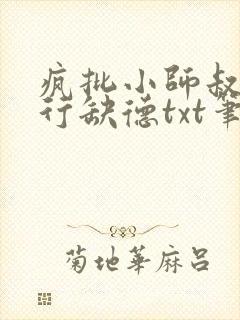 疯批小師叔
行缺德txt筆
菊地華麻吕